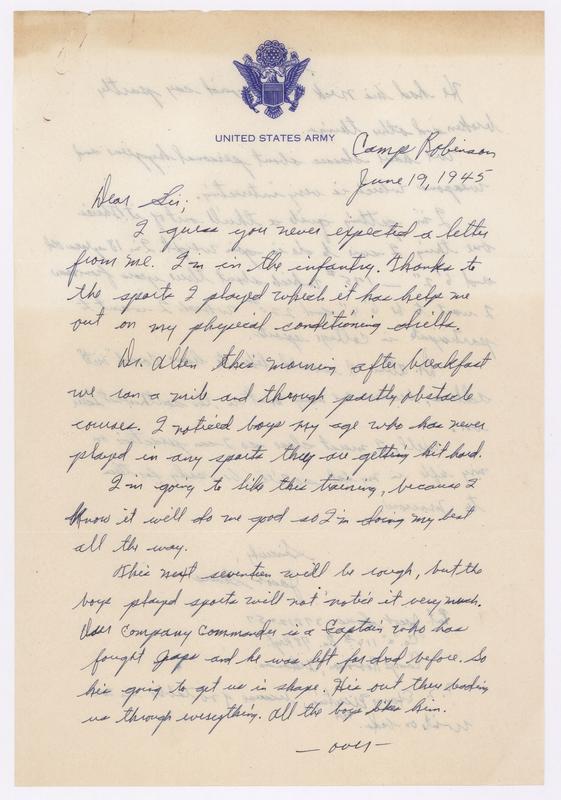 UNITED STATES ARMY
Camp Robinson
June 19, 1945
Dear Sir;
I guess you never expected a letter
from me. I'm in the infantry. Thanks to
the sports I played which it has helps me
out on my physical conditioning drills.
Dr. Allen this morning after breakfast
we ran a mile and through partly obstacle
courses. I noticed boys my age who has never
played in any sports they are getting hit hard.
I'm going to like this training, because I
know it will do me good so I'm doing my best
all the way.
This next seventeen will be rough, but the
boys played sports will not notice it very much.
Our Company Commander is a Captain who has
fought Japs and he was left for dead before. So
his going to get us in shape. His out there leading
us through everything. All the boys likes him.
— over —